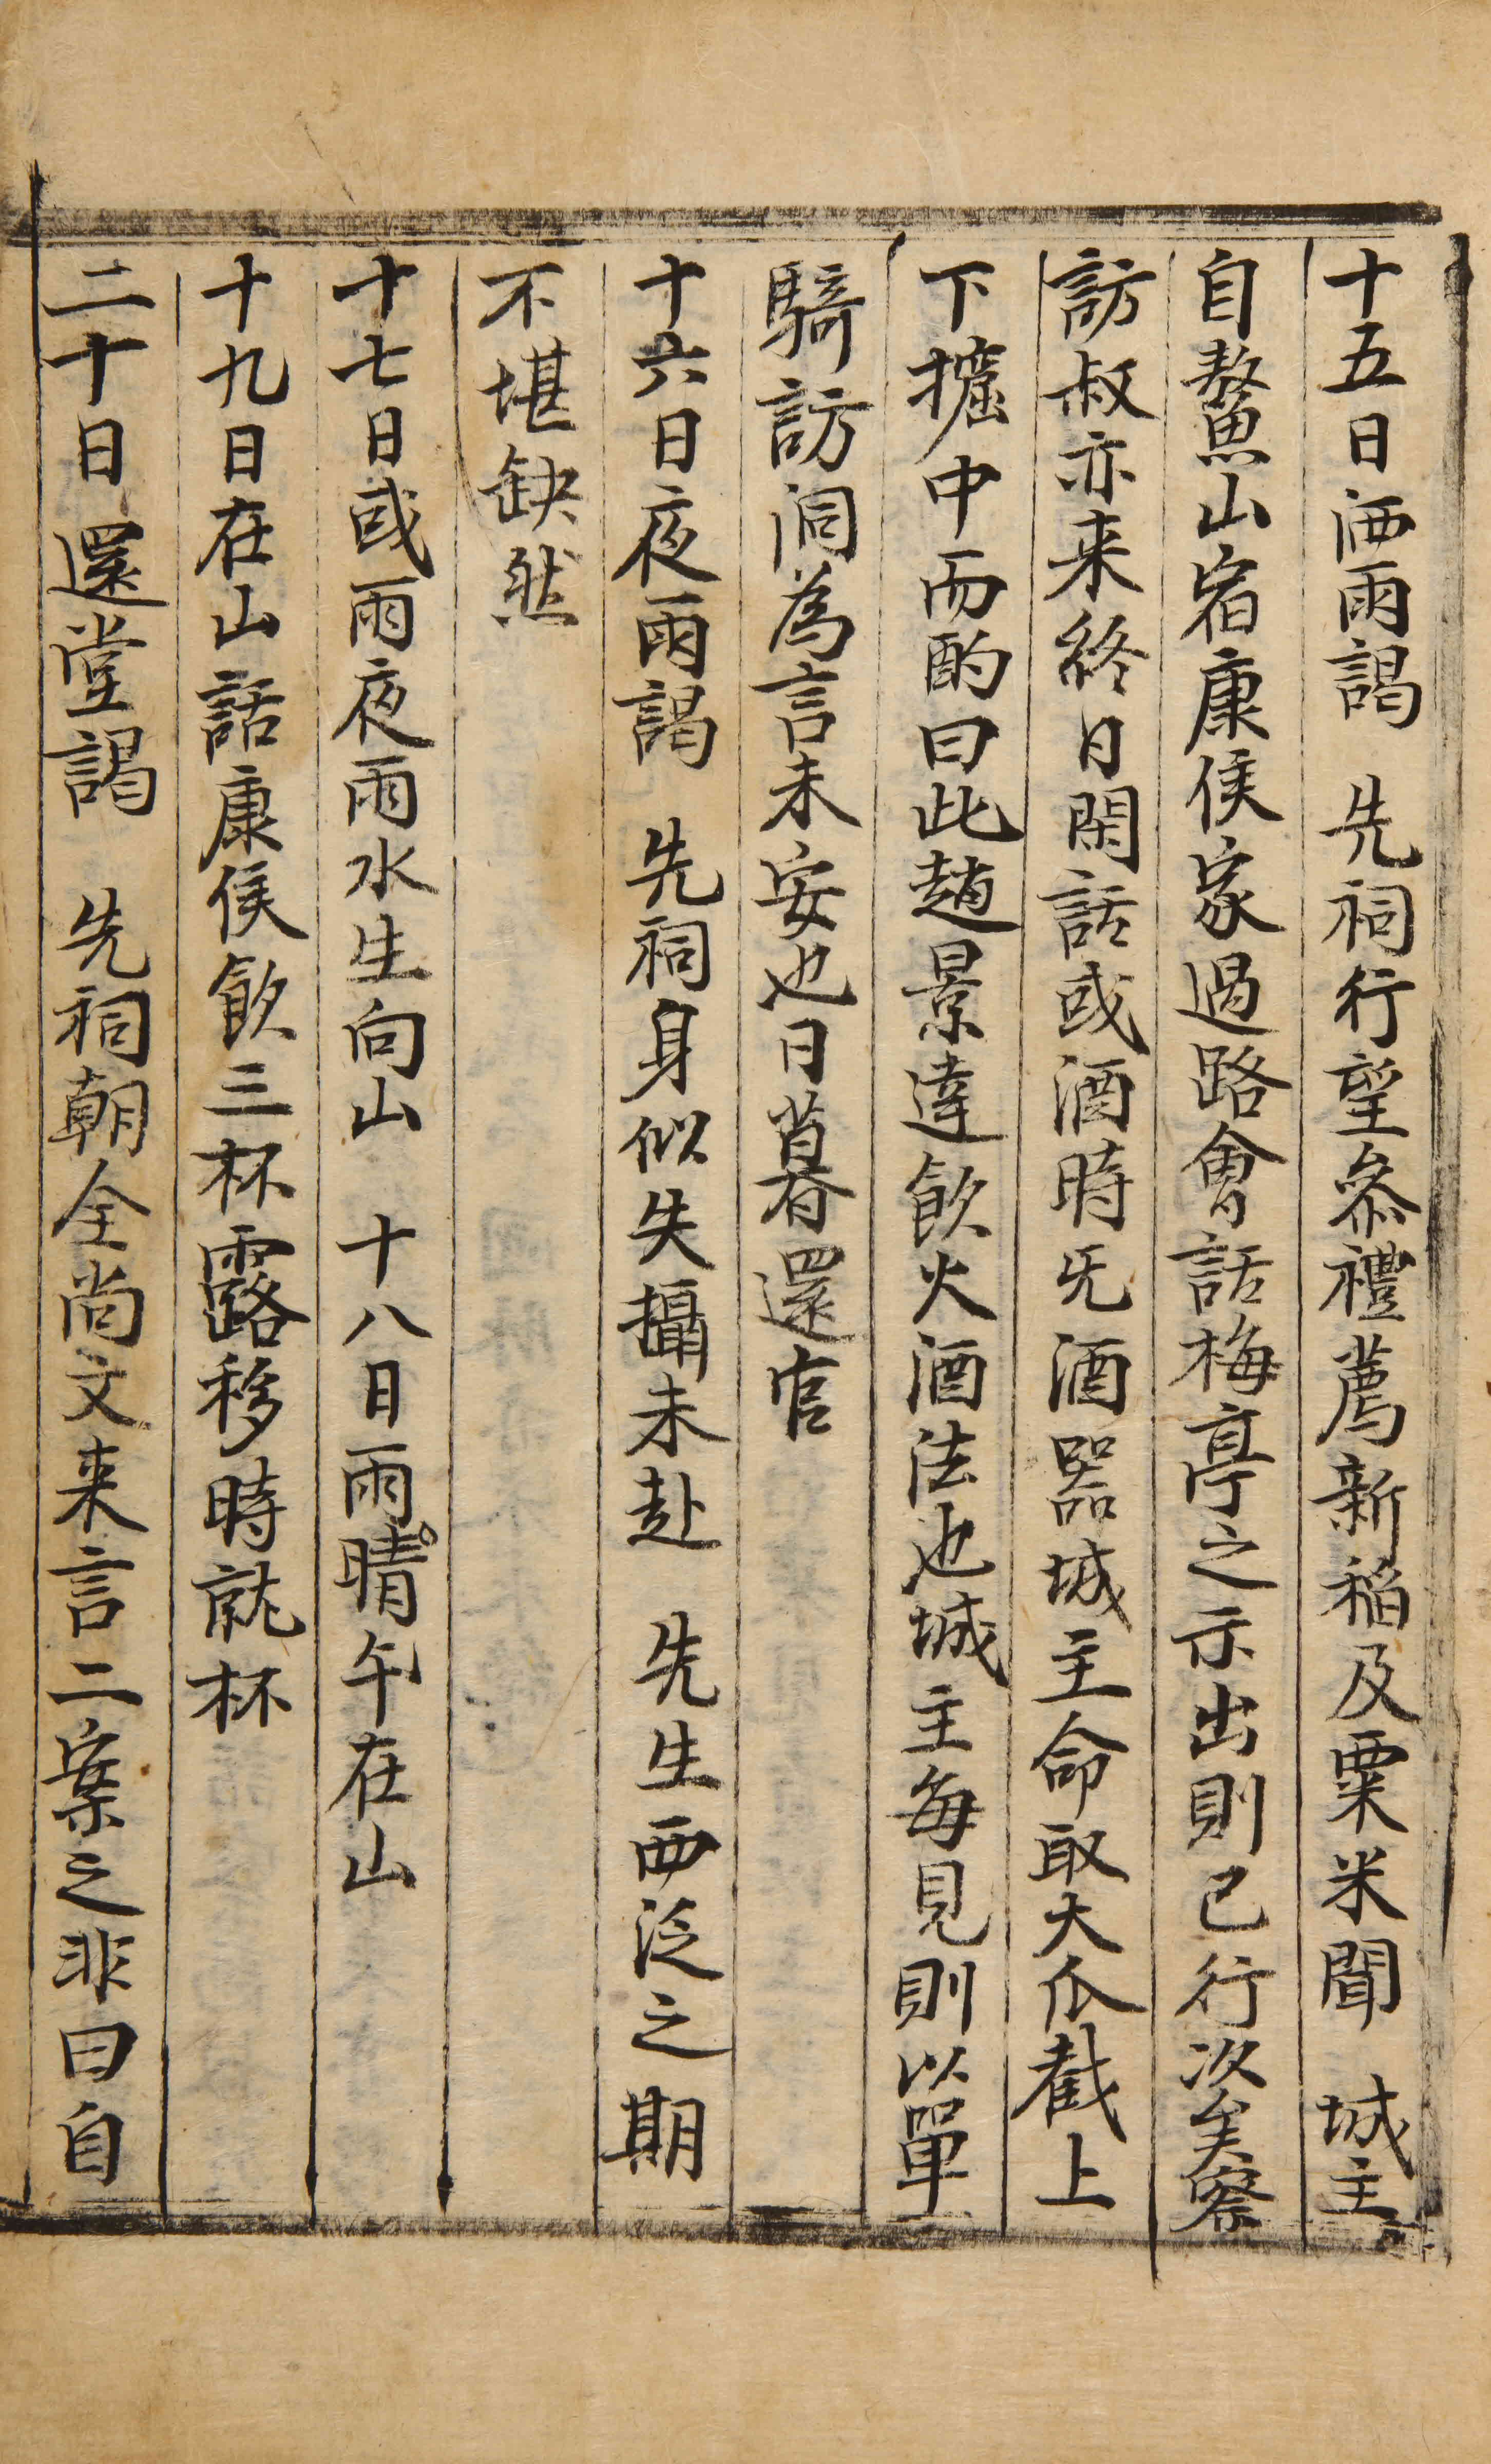 十五日洒雨謁　先祠行望叅禮薦新稻及粟米聞　城主
自鰲山宿康侯家過路會話梅亭之示出則已行次矣察
訪叔亦来終日閑話或酒時旡酒器城主命取大瓜截上
下攄中而酌曰此趙景達飮火酒法也城主每見則以單
騎訪洞為言未安也日暮還官
十六日夜雨謁　先祠身似失攝未赴　先生西泛之期
不堪缺然
十七日或雨夜雨水生向山　十八日雨晴午在山
十九日在山話康侯飮三杯露移時就杯
二十日　還堂謁　先祠朝全尚文来言二案之非曰自